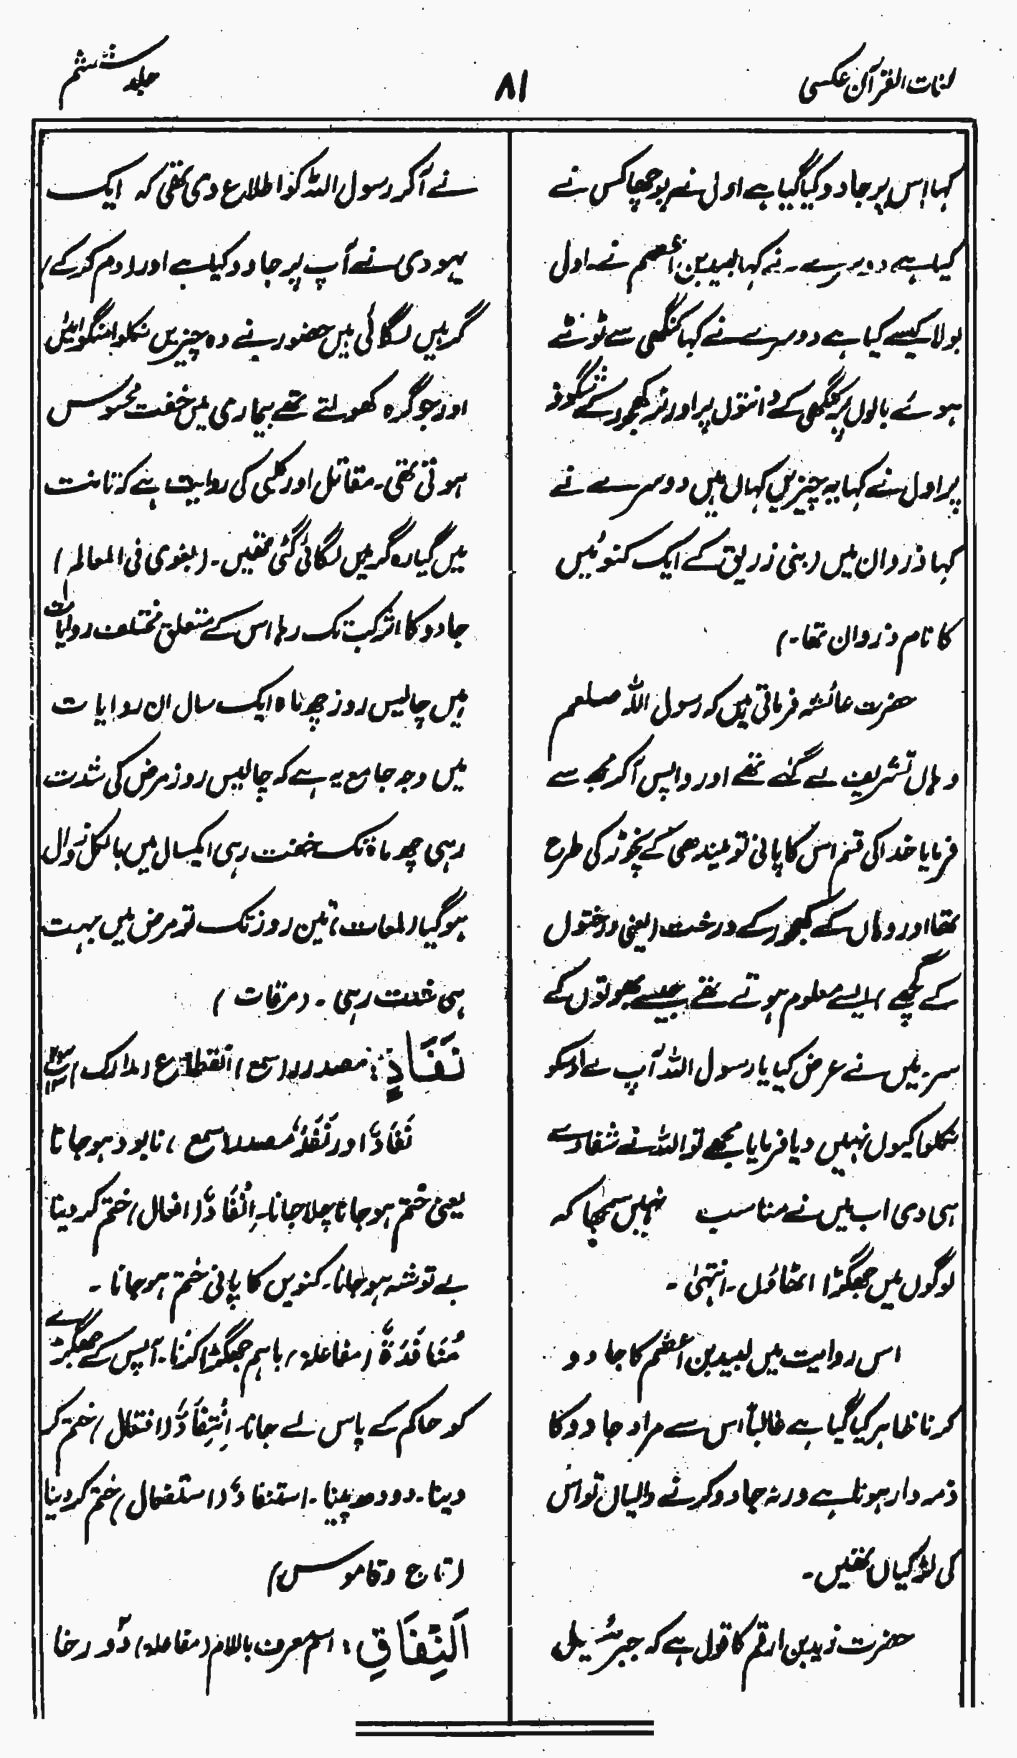 لغات القرآن عکسی
۸۱
جلد ششم
کہا اس پر جادو کیا گیا ہے اول نے پوچھا کس نے
کیا ہے دوسرے نے کہا لبید بن اعصم نے۔ اول
بولا کیسے کیا ہے دوسرے نے کہا کنگھی سے ٹوٹے
ہوئے بالوں پر کنگھی کے دانتوں پر اور نر کھجور کے شگوفہ
پر اول نے کہا یہ چیزیں کہاں ہیں دوسرے نے
کہا ذروان میں (بنی زریق کے ایک کنوئیں
کا نام ذروان تھا۔)
حضرت عائشہ فرماتی ہیں کہ رسول اللہ صلعم
وہاں تشریف لے گئے تھے اور واپس آ کر مجھ سے
فرمایا خدا کی قسم اس کا پانی تو مہندی کے نچوڑ کی طرح
تھا اور وہاں کے کھجور کے درخت (یعنی درختوں
کے گچھے) ایسے معلوم ہوتے تھے جیسے بھوتوں کے
سر۔ میں نے عرض کیا یا رسول اللہ آپ نے اوسکو
نکلوا کیوں نہیں دیا فرمایا مجھے تو اللہ نے شفا دے
ہی دی اب میں نے مناسب نہیں سمجھا کہ
لوگوں میں جھگڑا اٹھاؤں۔ انتہیٰ۔
اس روایت میں لبید بن اعصم کا جادو
کرنا ظاہر کیا گیا ہے غالباً اس سے مراد جادو کا
ذمہ دار ہونا ہے ورنہ جادو کرنے والیاں تو اس
کی لڑکیاں تھیں۔
حضرت زید بن ارقم کا قول ہے کہ جبرئیل
نے آ کر رسول اللہ کو اطلاع دی تھی کہ ایک
یہودی نے آپ پر جادو کیا ہے اور (دم کر کے)
گرہیں لگائی ہیں حضور نے وہ چیزیں نکلوا منگوائیں
اور جو گرہ کھولتے تھے بیماری میں خفت محسوس
ہوتی تھی۔ مقاتل اور کلبی کی روایت ہے کہ تانت
میں گیارہ گرہیں لگائی گئی تھیں۔ (بغوی فی المعالم)
جادو کا اثر کب تک رہا اس کے متعلق مختلف روایات
ہیں چالیس روز چھ ماہ ایک سال ان روایات
میں وجہ جامع یہ ہے کہ چالیس روز مرض کی شدت
رہی چھ ماہ تک خفت رہی ایکسال میں بالکل زوال
ہوگیا (لمعات) تین روز تک تو مرض میں بہت
ہی شدت رہی۔ (مرقات)
نَفَادٍ : مصدر (سمع) انقطاع (مدارک)
نَفَادٌ اور نَفَدٌ مصدر (سمع) نابود ہو جانا
یعنی ختم ہو جانا چلا جانا۔ اِنْفَادٌ (افعال) ختم کر دینا
بے توشہ ہو جانا۔ کنویں کا پانی ختم ہو جانا۔
مُنَافَدَۃٌ (مفاعلہ) باہم جھگڑا کرنا۔ آپس کے جھگڑے
کو حاکم کے پاس لے جانا۔ اِنْتِفَادٌ (افتعال) ختم کر
دینا۔ دودھ پینا۔ استنفادٌ (استفعال) ختم کر دینا
(تاج و قاموس)
اَلنِّفَاقِ : اسم معرف باللام (مفاعلہ) دو رخا